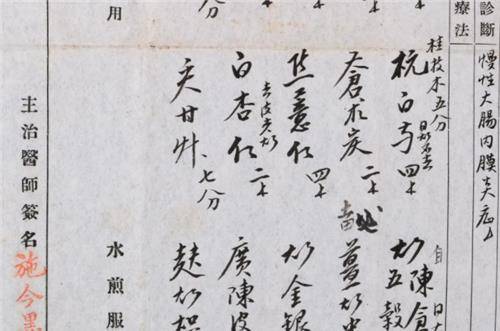 診斷
療法
慢性大腸内膜炎症
桂枝木五分
杭白芍 四錢
蒼朮炭 二錢
焦薏仁 四錢
白杏仁 二錢
去皮尖炒
炙甘艸 七分
炒陳倉
五穀
薑炒
炒金銀
廣陳皮
麩炒枳
用
水煎服
主治醫師簽名
施今墨